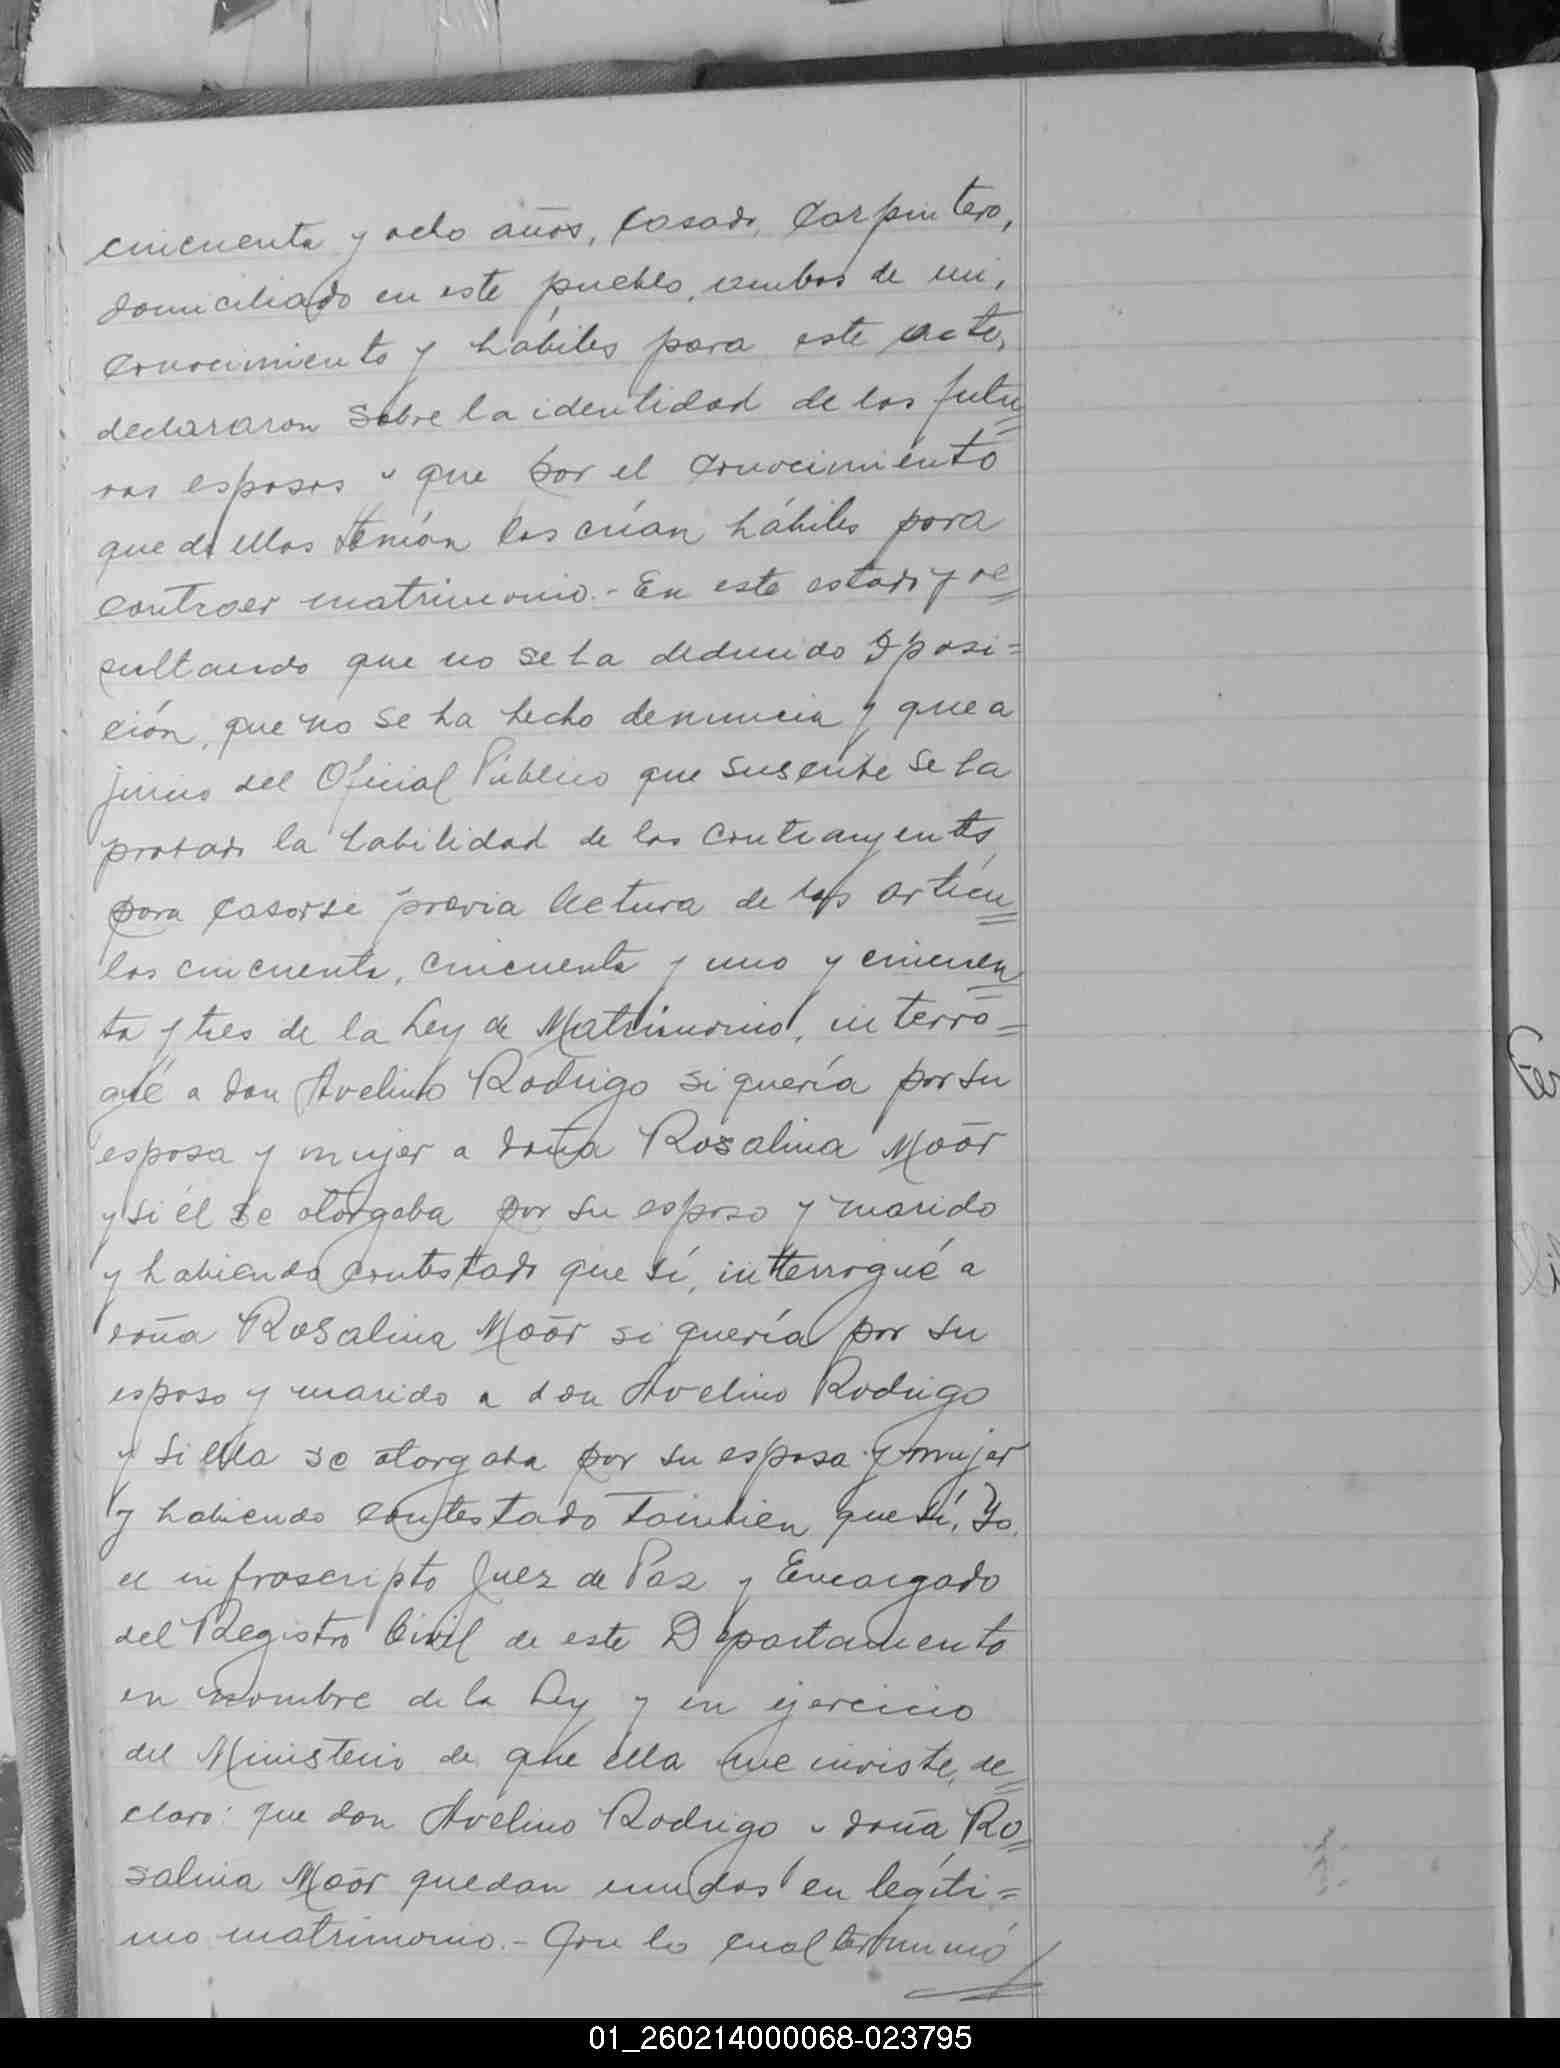 cincuenta y ocho años, casado, carpintero,
domiciliado en este pueblo, ambos de mi,
conocimiento y hábiles para este acto,
declararon sobre la identidad de los futu=
ros esposos y que por el conocimiento
que de ellos tenían los crían hábiles para
contraer matrimonio.- En este estado y re=
sultando que no se ha deducido oposi=
ción, que no se ha hecho denuncia y que a
juicio del Oficial Público que suscribe se ha
probado la habilidad de los contrayentes
para casarse previa lectura de los artícu=
los cincuenta, cincuenta y uno y cincuen=
ta y tres de la Ley de Matrimonio, interro=
gué a don Avelino Rodrigo si quería por su
esposa y mujer a doña Rosalina Moor
y si él se otorgaba por su esposo y marido
y habiendo contestado que sí, interrogué a
doña Rosalina Moor si quería por su
esposo y marido a don Avelino Rodrigo
y si ella se otorgaba por su esposa y mujer
y habiendo contestado también que sí, Yo,
el infrascripto Juez de Paz y Encargado
del Registro Civil de este Departamento
en nombre de la Ley y en ejercicio
del Ministerio de que ella me inviste, de=
claro: que don Avelino Rodrigo y doña Ro=
salina Moor quedan unidos en legíti=
mo matrimonio.- Con lo cual terminó
01_260214000068-023795